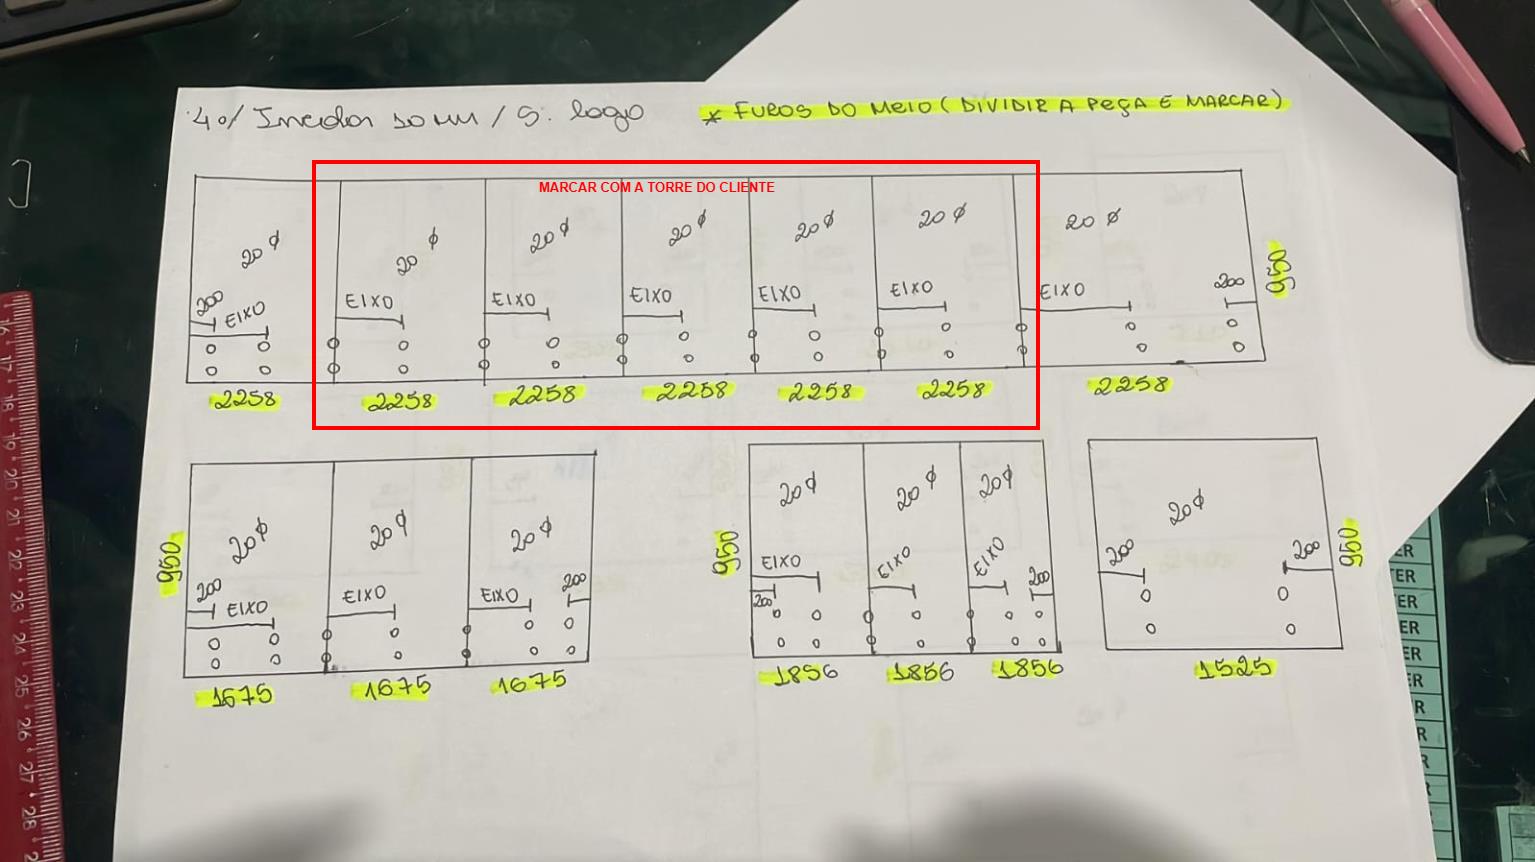 40/ Incolor 10 mm / S. logo
* FUROS DO MEIO (DIVIDIR A PEÇA E MARCAR)
MARCAR COM A TORRE DO CLIENTE
20 ϕ 20 ϕ 20 ϕ 20 ϕ 20 ϕ 20 ϕ 20 ϕ
200 EIXO EIXO EIXO EIXO EIXO EIXO EIXO 200 950
2258 2258 2258 2258 2258 2258 2258
20 ϕ 20 ϕ 20 ϕ
950 200 EIXO EIXO EIXO 200
1675 1675 1675
20 ϕ 20 ϕ 20 ϕ
950 EIXO 200 EIXO EIXO 200
1856 1856 1856
20 ϕ
200 200 950
1525
16 17 18 19 20 21 22 23 24 25 26 27 28
ER
TER
ER
ER
ER
ER
R
R